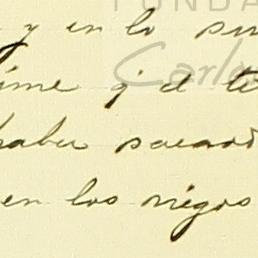 FUNDA
y en lo su
Carlos
ime q' el te
haber sacado
en los